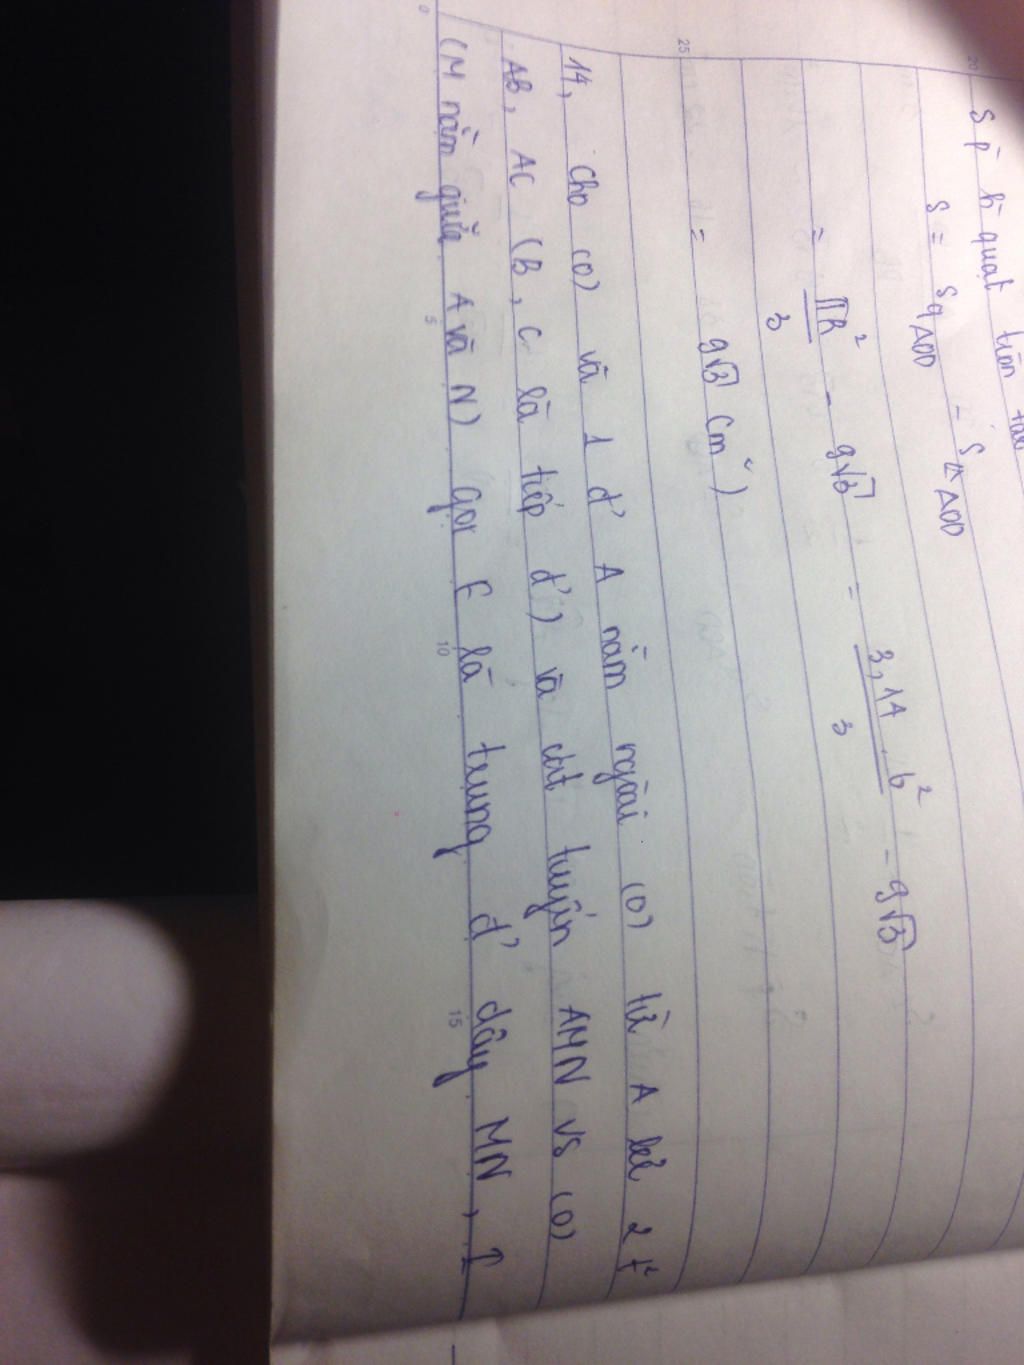 S h quạt tròn
S = SqAOD - S△AOD
= πR²/3 - 9√3 = 3,14.6²/3 - 9√3
= 9√3 (cm²)
14, Cho (O) và 1 đ' A nằm ngoài (O) từ A kẻ 2 t²
AB, AC (B, C là tiếp đ') và cát tuyến AMN vs (O)
(M nằm giữa A và N) gọi E là trung đ' dây MN, I
20
25
0
5
10
15